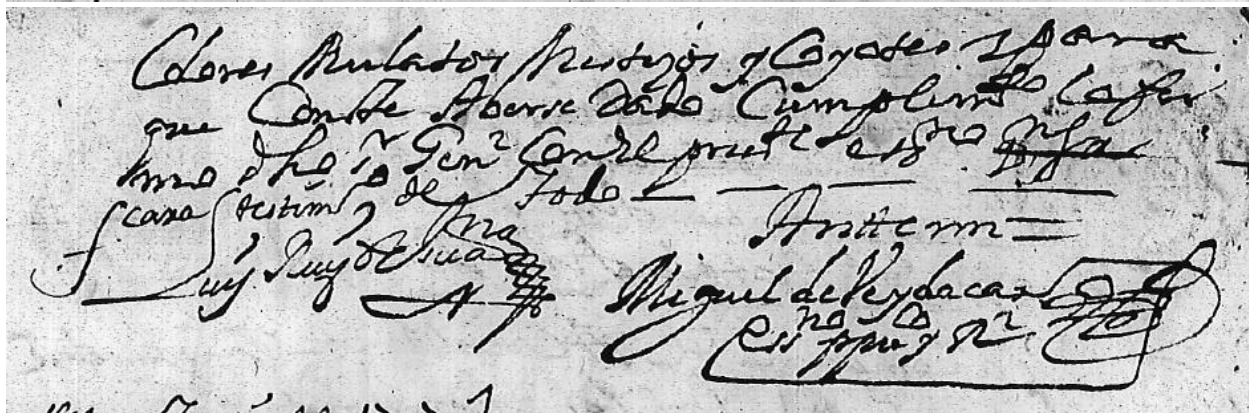 Colores Mulatos Mestizos y Coyotes y para
que Conste Aberse Dado Cumplimto Lo fir
mo dho sr Genl Con el preste essno
testimo de todo
Antte mi =
Luis Ruiz de
Miguel de
Essno ppco y Rl